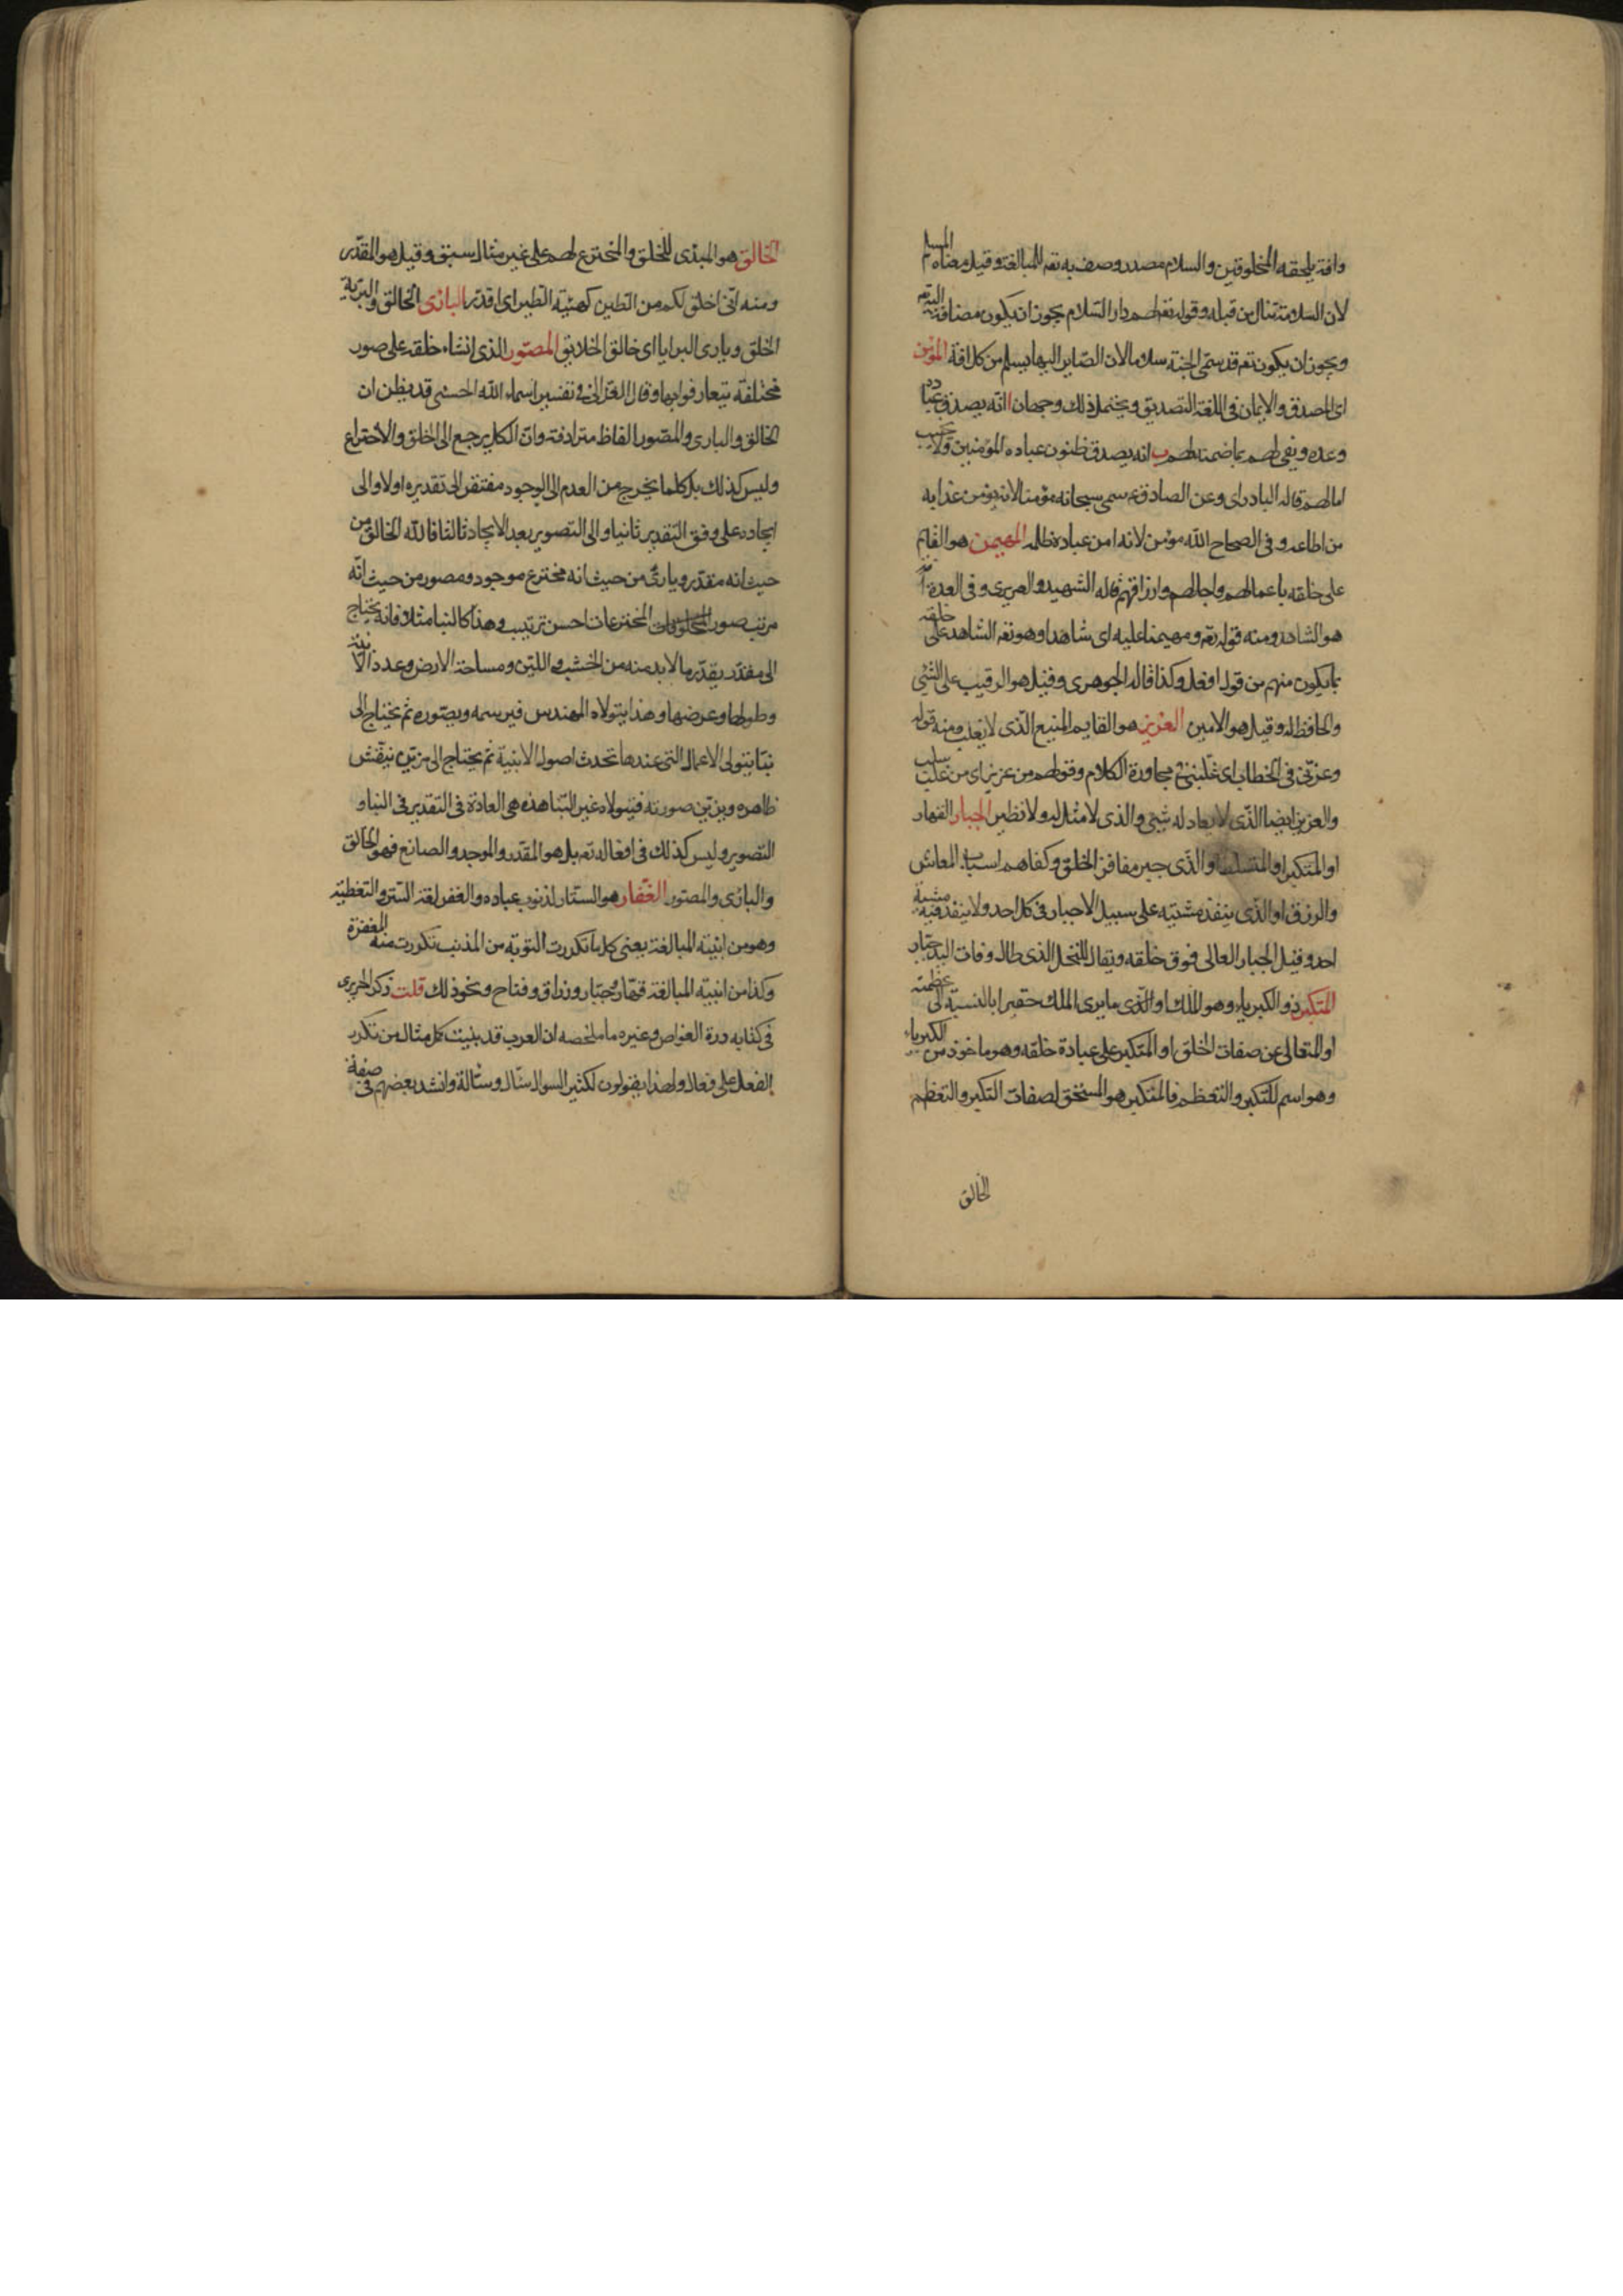 وافة يلحقه المخلوقين والسلام مصدر وصف به تعه للمبالغة وقيل معناه المسلم
لان السلامة تنال من قبله وقوله تعه لهم دار السلام يجوز ان يكون مضافة اليه تعه
ويجوز ان يكون تعه قد سمى الجنة سلاما لان الصاير اليها يسلم من كل افة المؤمن
اى المصدق والايمان فى اللغة التصديق ويحتمل ذلك وجهان ا انه يصدق عباده
وعده ويفى لهم بما ضمنه لهم ب انه يصدق ظنون عباده المؤمنين ولا يخيب
امالهم قاله البادراى وعن الصادق ع سمى سبحانه مؤمنا لانه يؤمن عذابه
من اطاعه وفى الصحاح الله مؤمن لانه امن عباده ظلمه المهيمن هو القايم
على خلقه باعمالهم واجالهم وارزاقهم قاله الشهيد والعزيزى وفى العدة
هو الشاهد ومنه قوله تعه ومهيمنا عليه اى شاهدا وهو تعه الشاهد على خلقه
بما يكون منهم من قول او فعل وكذا قاله الجوهرى وقيل هو الرقيب على الشئ
والحافظ له وقيل هو الامين العزيز هو القايم المنيع الذى لا يغلب ومنه قوله
وعزنى فى الخطاب اى غلبنى فى محاورة الكلام وقولهم من عز بز اى من غلب سلب
والعزيز ايضا الذى لا يعادله شئ والذى لا مثل له ولا نظير الجبار القهار
او المتكبر او المتسلط او الذى جبر مفاقر الخلق وكفاهم اسباب المعاش
والرزق او الذى ينفذ مشيته على سبيل الاجبار فى كل احد ولا ينفذ فيه مشية
احد وقيل الجبار العالى فوق خلقه ويقال للنخل الذى طال وفات اليد جبار
المتكبر ذو الكبرياء وهو الملك او الذى ما يرى الملك حقيرا بالنسبة الى عظمته
او المتعالى عن صفات الخلق او المتكبر على عباده خلقه وهو ماخوذ من الكبرياء
وهو اسم للتكبر والتعظم فالمتكبر هو المستحق لصفات التكبر والتعظم
الخالق
الخالق هو المبدى للخلق والمخترع لهم على غير مثال سبق وقيل هو المقدر
ومنه انى اخلق لكم من الطين كهيئة الطير اى اقدر البارئ الخالق والبرية
الخلق وبارى البرايا اى خالق الخلايق المصور الذى انشاء خلقه على صور
مختلفة يتعارفوا بها وقال الغزالى فى تفسير اسماء الله الحسنى قد يظن ان
الخالق والبارى والمصور الفاظ مترادفة وان الكل يرجع الى الخلق والاختراع
وليس كذلك بل كلما يخرج من العدم الى الوجود مفتقر الى تقديره اولا والى
ايجاده على وفق التقدير ثانيا والى التصوير بعد الايجاد ثالثا فالله الخالق من
حيث انه مقدر وبارئ من حيث انه مخترع موجود ومصور من حيث انه
مرتب صور المخترعات احسن ترتيب وهذا كالبنا مثلا فانه يحتاج
الى مقدر يقدر ما لا بد منه من الخشب واللبن ومساحة الارض وعدد الابنية
وطولها وعرضها وهذا يتولاه المهندس فيرسمه ويصوره ثم يحتاج الى
بنا يتولى الاعمال التى عندها تحدث اصول الابنية ثم يحتاج الى مزين ينقش
ظاهره ويزين صورته فيتولاه غير البنا هذه هى العادة فى التقدير فى البناو
التصوير وليس كذلك فى افعاله تعه بل هو المقدر والموجد والصانع فهو الخالق
والبارئ والمصور الغفار هو الستار لذنوب عباده والغفر لغة الستر والتغطية
وهو من ابنية المبالغة يعنى كلما تكررت التوبة من المذنب تكررت منه المغفرة
وكذا من ابنية المبالغة قهار وجبار ورزاق وفتاح ونحو ذلك قلت ذكر الحريرى
فى كتابه درة الغواص وغيره ما ملخصه ان العرب قد بنيت كل مثال من تكرر
الفعل على فعال ولهذا يقولون لكثير السوال سئال وسئالة وانشد بعضهم فى صفة